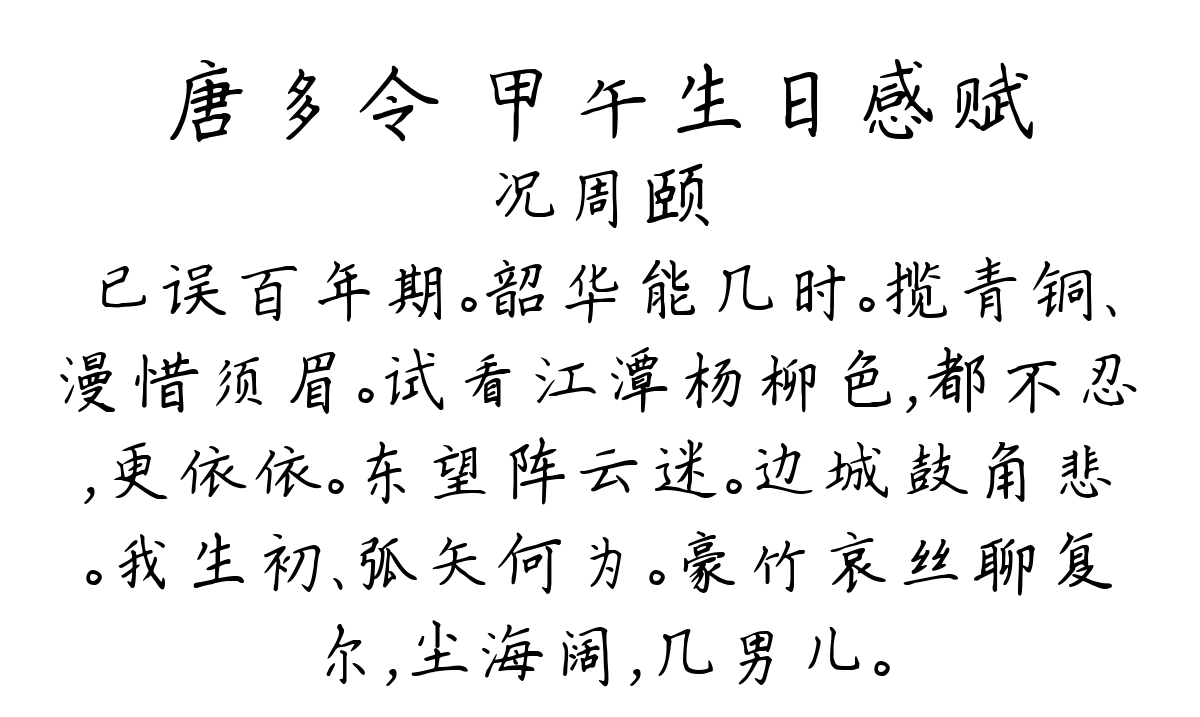 唐多令 甲午生日感赋
况周颐
已误百年期。韶华能几时。揽青铜、
漫惜须眉。试看江潭杨柳色,都不忍
,更依依。东望阵云迷。边城鼓角悲
。我生初、弧矢何为。豪竹哀丝聊复
尔,尘海阔,几男儿。